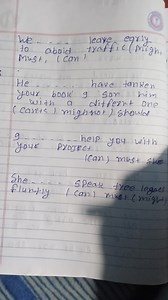 We ........ leave early
to aboid traffic (might,
must, (can)
He ........ have tanken
your book I son him
with a different one
(cant's | mignot) should
I ........ help you with
your project
(can) must
She ........ speak
flumtly (can) must (might